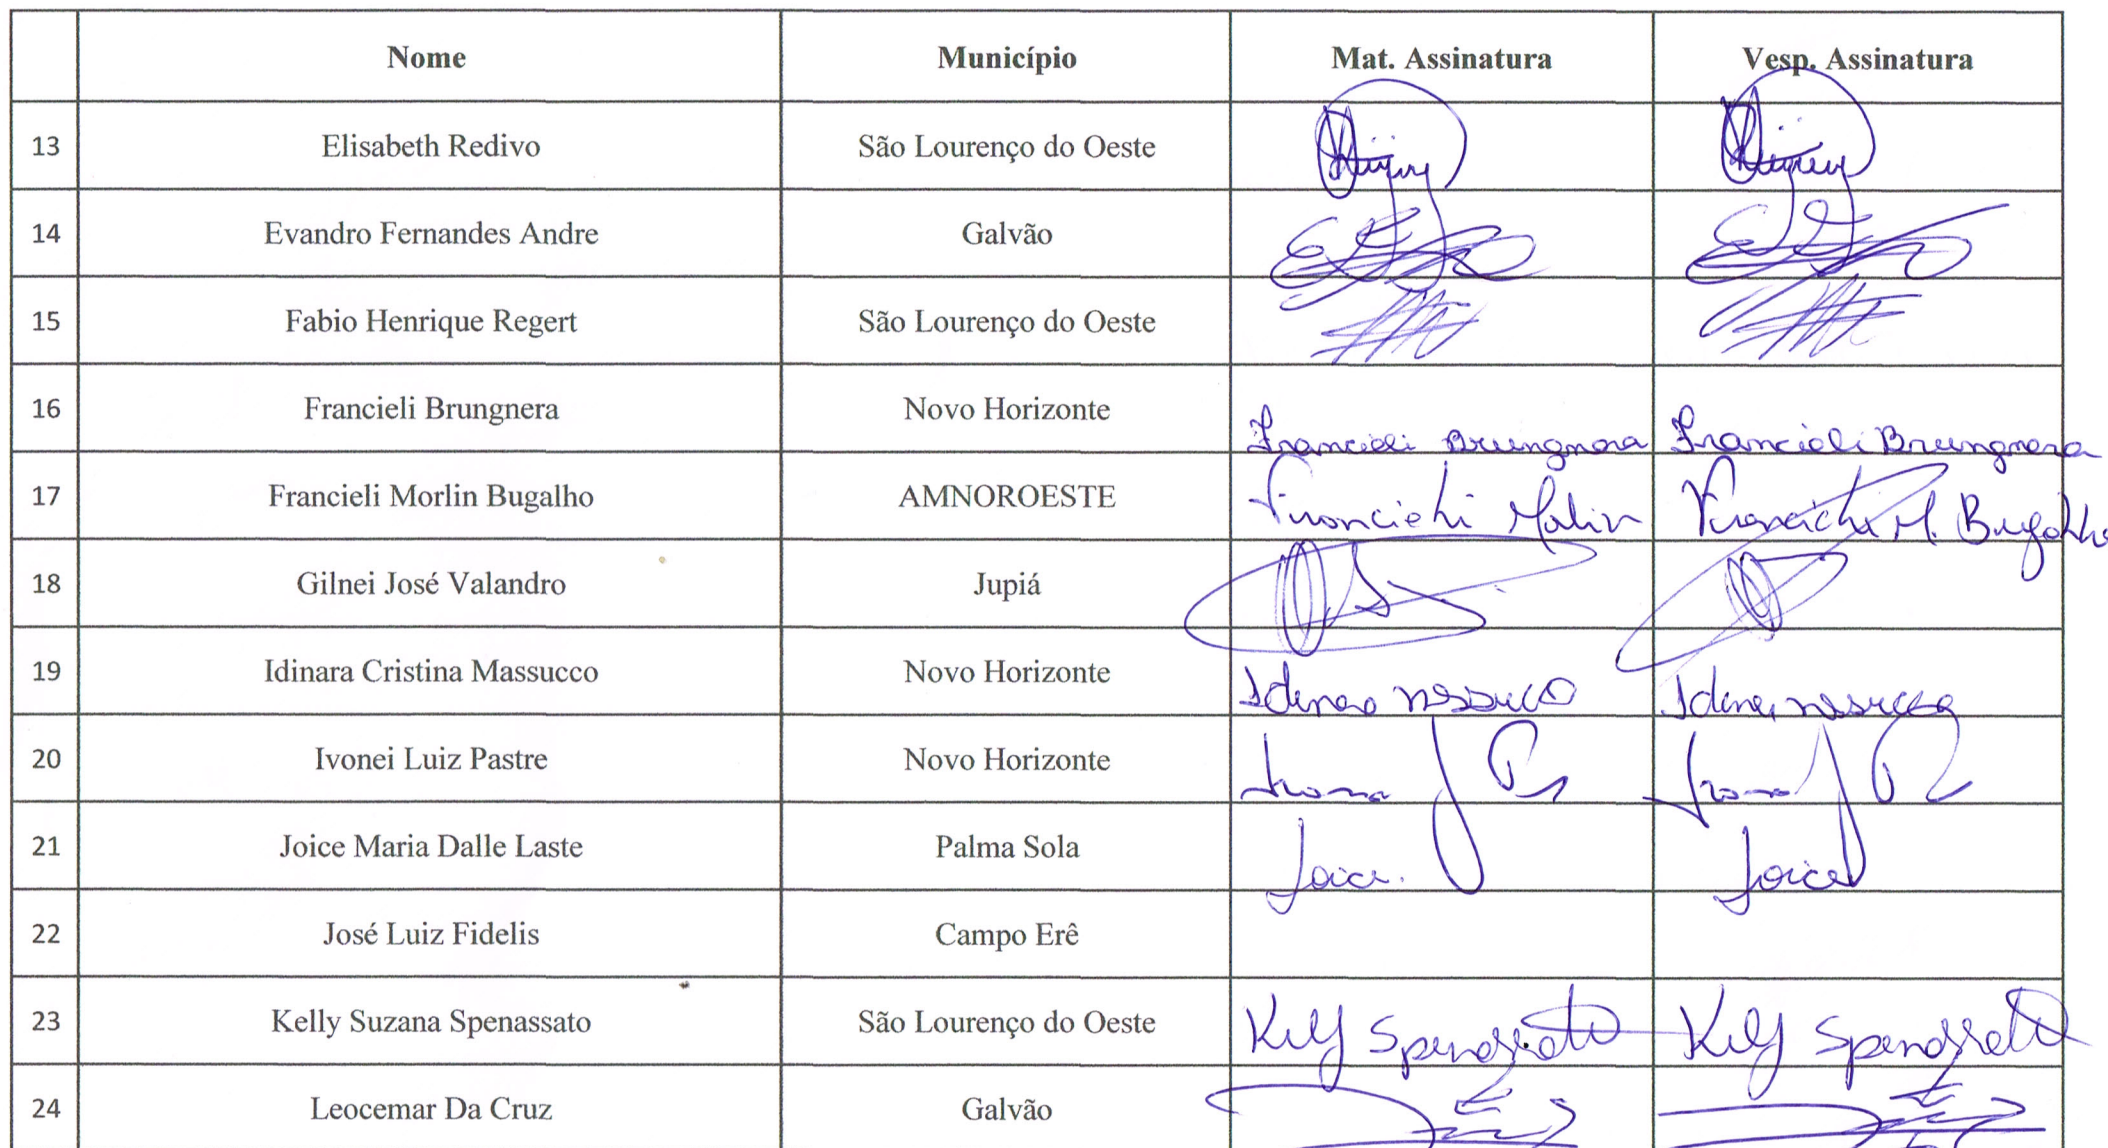 Nome Município Mat. Assinatura Vesp. Assinatura
13 Elisabeth Redivo São Lourenço do Oeste
14 Evandro Fernandes Andre Galvão
15 Fabio Henrique Regert São Lourenço do Oeste
16 Francieli Brungnera Novo Horizonte Francieli Brungnera Francieli Brungnera
17 Francieli Morlin Bugalho AMNOROESTE Francieli Morlin Francieli M. Bugalho
18 Gilnei José Valandro Jupiá
19 Idinara Cristina Massucco Novo Horizonte
20 Ivonei Luiz Pastre Novo Horizonte
21 Joice Maria Dalle Laste Palma Sola Joice. Joice
22 José Luiz Fidelis Campo Erê
23 Kelly Suzana Spenassato São Lourenço do Oeste Kelly Spenassato Kelly Spenassato
24 Leocemar Da Cruz Galvão